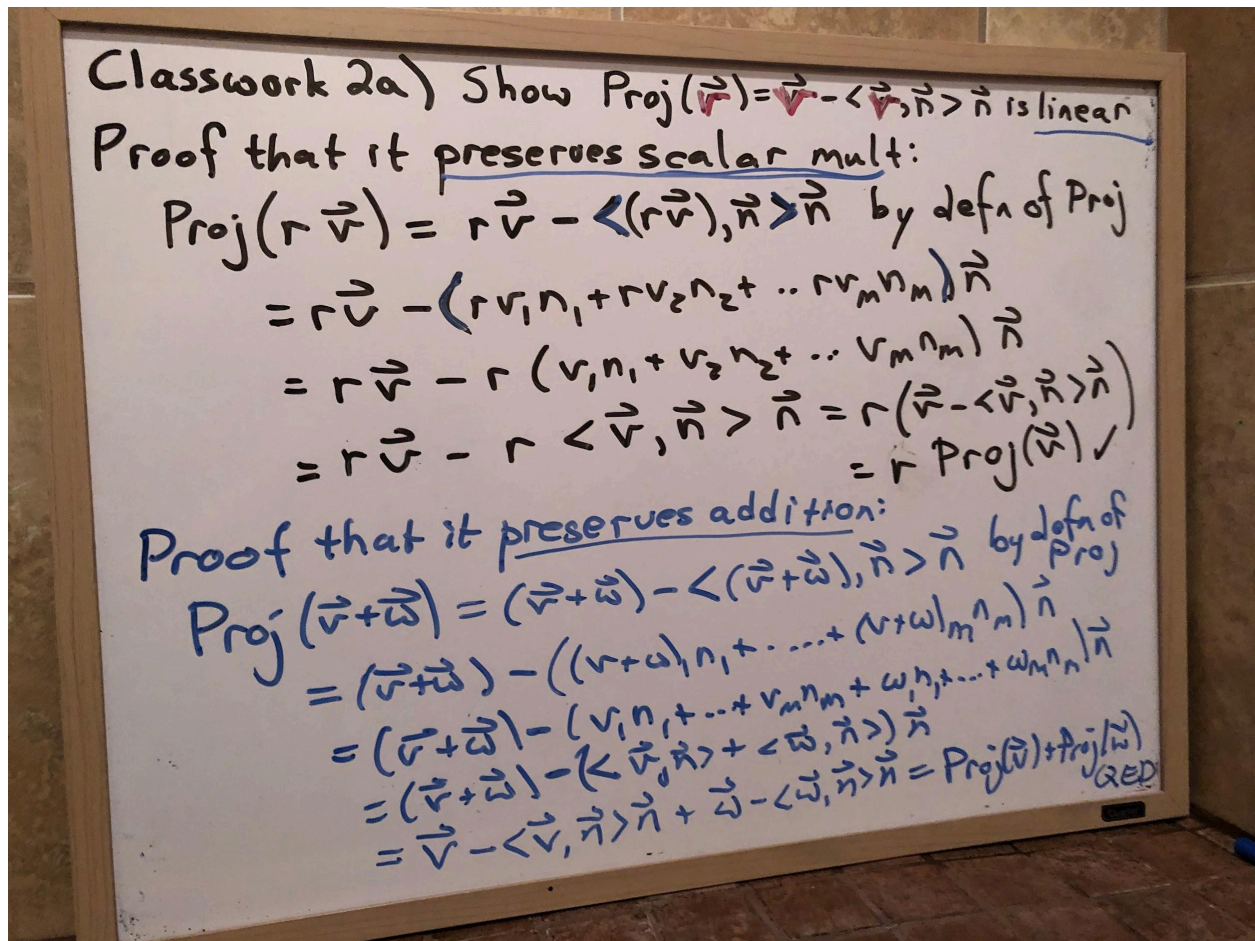 Classwork 2a) Show Proj(v⃗)=v⃗-<v⃗,n⃗>n⃗ is linear
Proof that it preserves scalar mult:
Proj(r v⃗) = r v⃗ - <(r v⃗),n⃗>n⃗ by defn of Proj
= r v⃗ - (rv₁n₁+rv₂n₂+ .. rvₘnₘ)n⃗
= r v⃗ - r (v₁n₁+v₂n₂+ .. vₘnₘ) n⃗
= r v⃗ - r <v⃗,n⃗> n⃗ = r(v⃗-<v⃗,n⃗>n⃗)
= r Proj(v⃗) ✓
Proof that it preserves addition:
Proj(v⃗+w⃗) = (v⃗+w⃗) - <(v⃗+w⃗),n⃗>n⃗ by defn of Proj
= (v⃗+w⃗) - ((v+w)₁n₁+.....+(v+w)ₘnₘ)n⃗
= (v⃗+w⃗) - (v₁n₁+...+vₘnₘ+w₁n₁+...+wₘnₘ)n⃗
= (v⃗+w⃗) - (<v⃗,n⃗>+<w⃗,n⃗>)n⃗
= v⃗ - <v⃗,n⃗>n⃗ + w⃗ - <w⃗,n⃗>n⃗ = Proj(v⃗)+Proj(w⃗)
QED